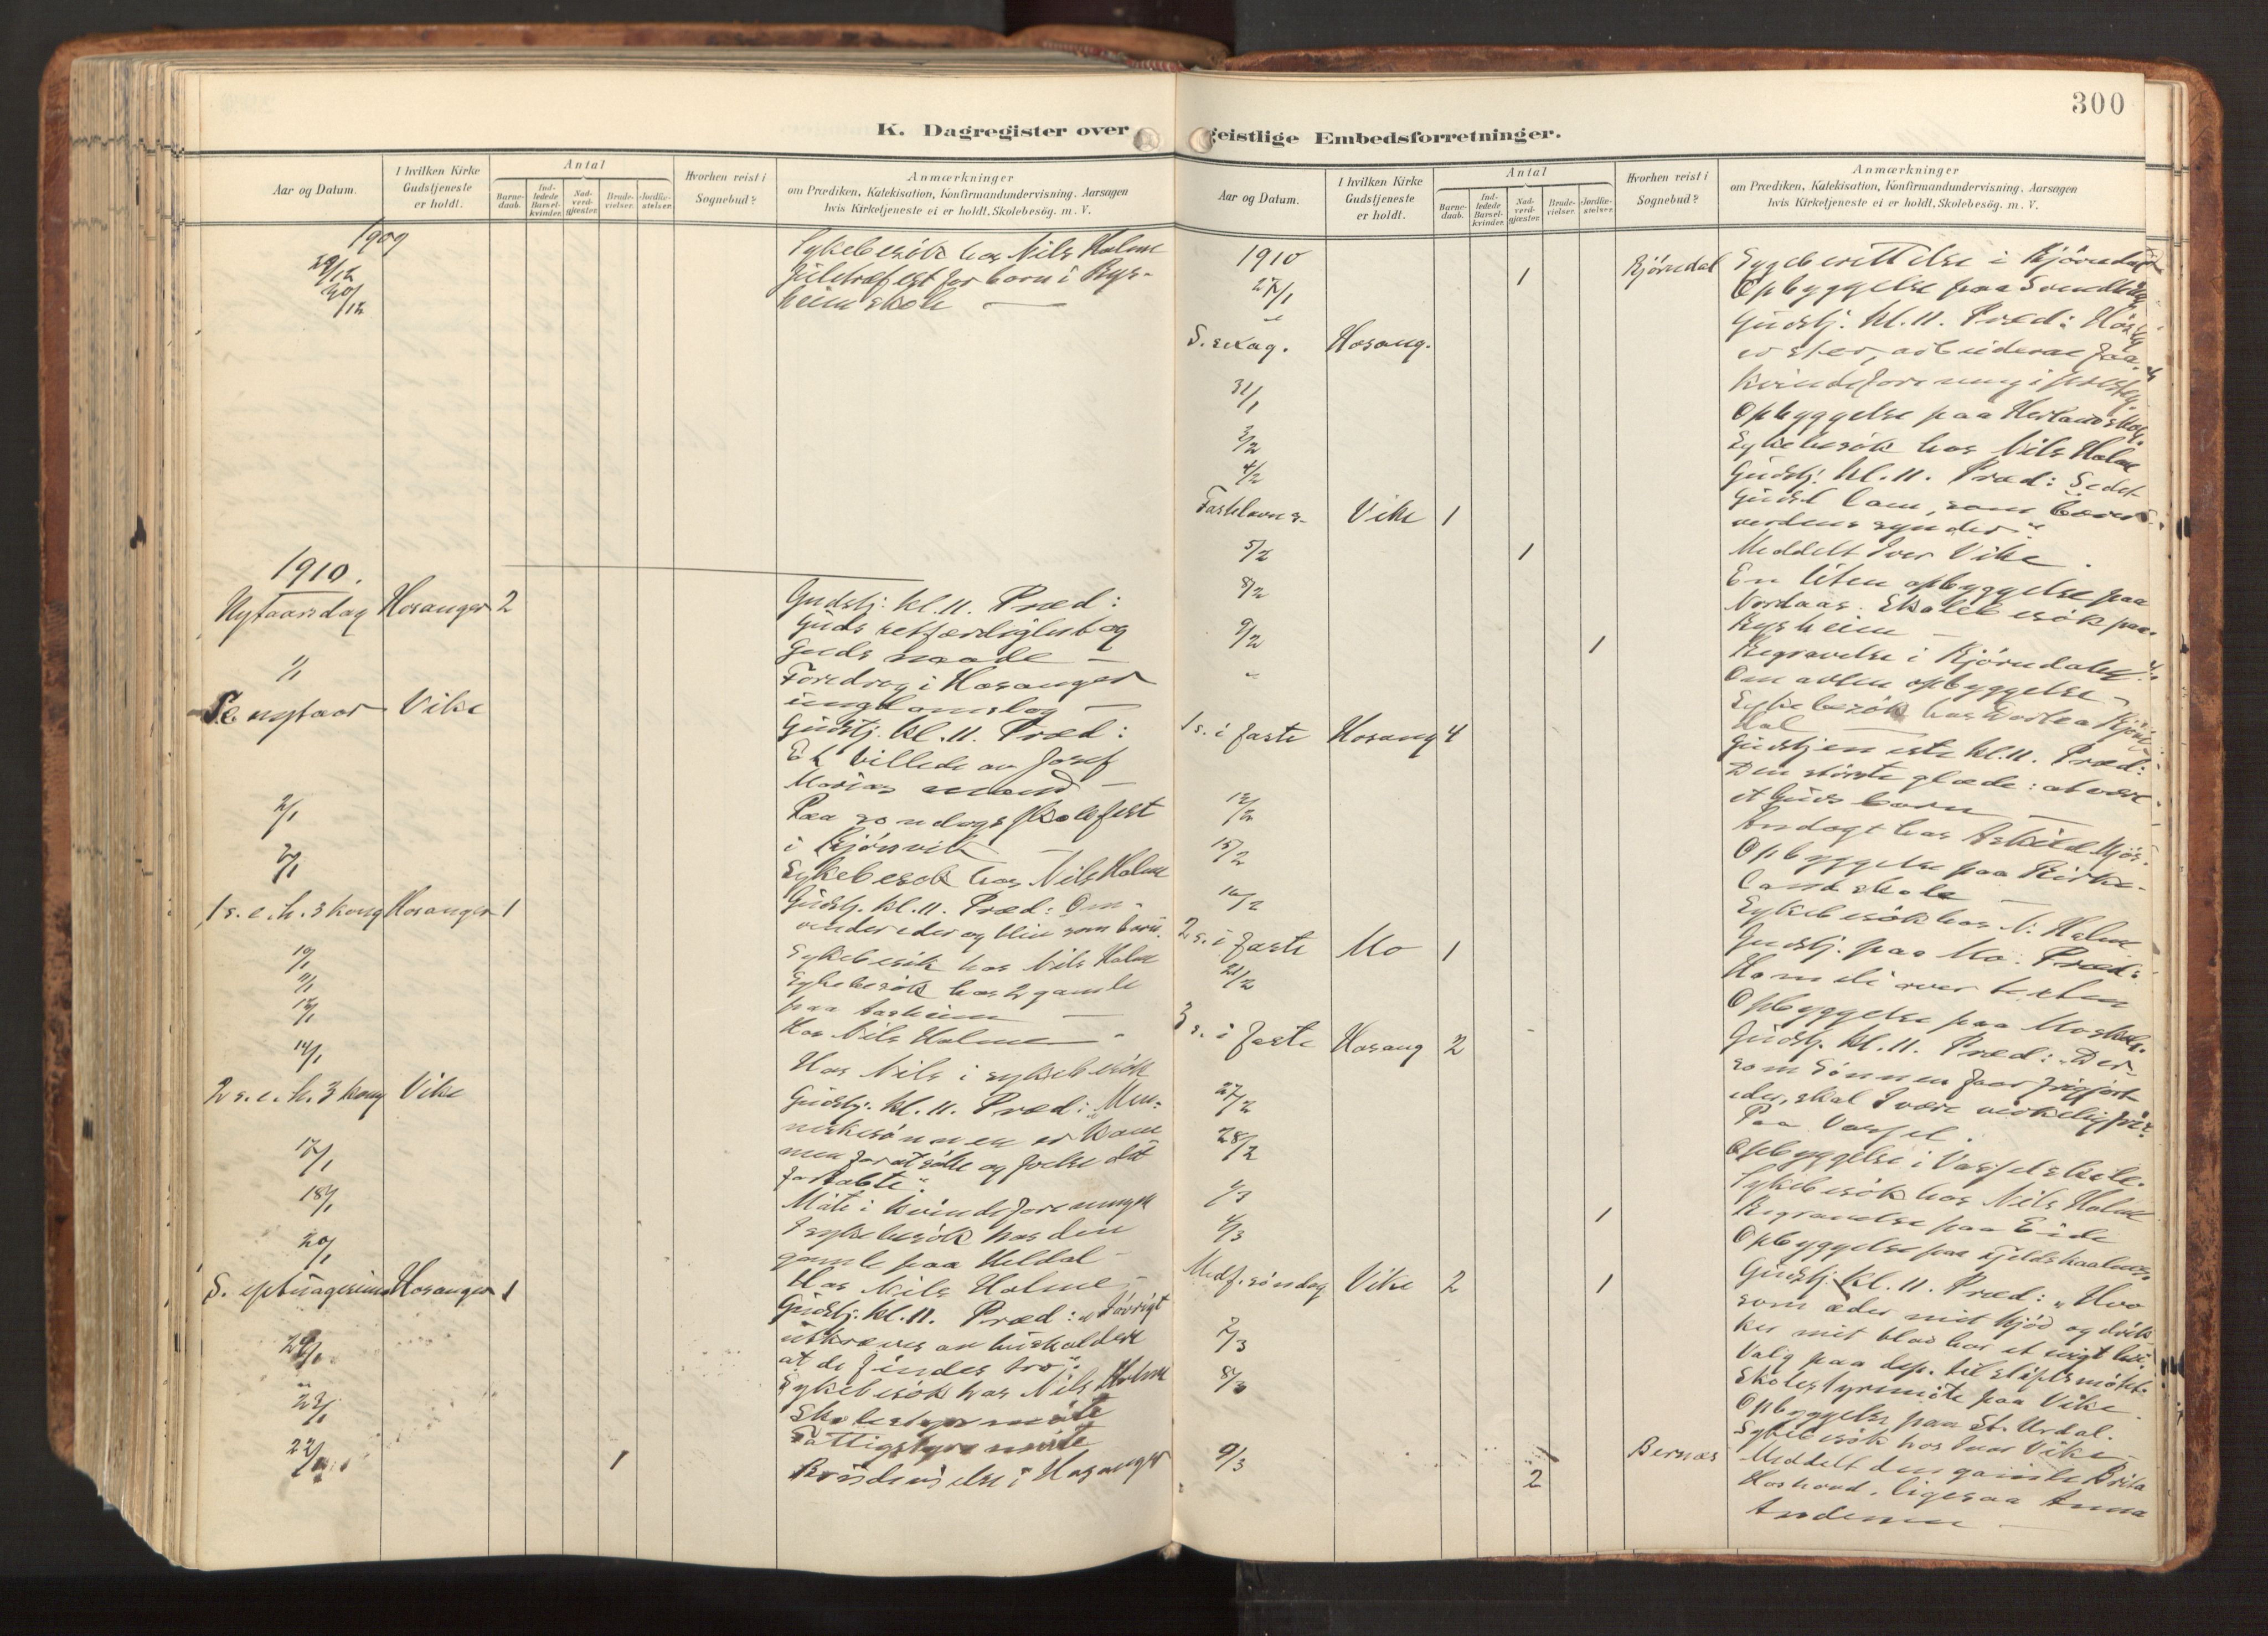 300
K. Dagregister over geistlige Embedsforretninger.
Aar og Datum.
I hvilken Kirke Gudstjeneste er holdt.
Antal
Barne-daab.
Ind-ledede Barsel-kvinder.
Nad-verd-gjæster.
Brude-vielser.
Jordfæ-stelser.
Hvorhen reist i Sognebud?
Anmærkninger
om Prædiken, Katekisation, Konfirmandundervisning. Aarsagen
hvis Kirketjeneste ei er holdt, Skolebesøg. m. V.
1909
29/12 Sykebesök hos Nils Holme
30/12 Juletræfest for born i Rys-
heim skole
1910.
Nytaarsdag Hosanger 2 Gudstj. kl. 11. Præd:
Guds retfærdighet og
Guds naade
1/1 Foredrag i Hosanger
ungdomslag
S. e. nytaar Vike Gudstj. kl. 11. Præd:
Et billede av Josef
Marias mand
2/1 Paa søndagsskolefest
i
7/1 Sykebesök hos Nils Holme
1 s. e. h. 3 kong Hosanger 1 Gudstj. kl. 11. Præd: Om-
vender eder og bliv som born.
10/1 Sykebesök hos Nils Holme
11/1 Sykebesök hos 2 gamle
paa
12/1 Hos Nils Holme
14/1 Hos Nils i sykebesök
2 s. e. h. 3 kong Vike Gudstj. kl. 11. Præd: Men-
neskesönnen er kom
men for at söke og frelse det
fortabte."
17/1 Möte i kvindeforeningen
18/1 I sykebesök hos den
gamle paa Heldal
20/1 Hos Nils Holme
S. eptuagesima Hosanger 1 Gudstj. kl. 11. Præd: "Iövrigt
utkræves av husholdere
at de findes tro."
Sykebesök hos Nils Holme
Skolestyremöte
Fattigstyremöte
1 Brudevielse i Hosanger
Aar og Datum.
I hvilken Kirke Gudstjeneste er holdt.
Antal
Barne-daab.
Ind-ledede Barsel-kvinder.
Nad-verd-gjæster.
Brude-vielser.
Jordfæ-stelser.
Hvorhen reist i Sognebud?
Anmærkninger
om Prædiken, Katekisation, Konfirmandundervisning, Aarsagen
hvis Kirketjeneste ei er holdt, Skolebesøg. m. V.
1910
27/1 1 Bjørndal Sygeberettelse i Bjørndal
" Opbyggelse paa
S. sexag. Hosang. Gudstj. kl. 11. Præd:
31/1 Kvindeforening i
2/2 Opbyggelse paa Herlandskog.
4/2 Sykebesök hos Nils Holme
Fastelavns- Vike 1 Gudstj. kl. 11. Præd: Se det
Guds lam, som bærer
verdens synder."
5/2 1 Meddelt Iver Vike.
8/2 En liten opbyggelse paa
Nordaas. Skolebesök paa
Rysheim
9/2 1 Begravelse i Bjørndalen
" Om avten opbyggelse
Sykebesök hos Dortea Bjørn
dal
1 s. i faste Hosang 4 Gudstjeneste kl. 11. Præd:
Den störste glæde: at være
et Guds barn
12/2 Andagt hos Askild Mjös.
15/2 Opbyggelse paa Birke-
land skole
16/2 Sykebesök hos N. Holme
2 s. i faste Mo 1 Gudstj. paa Mo. Præd:
Homeli over texten
21/2 Opbyggelse paa Moskole.
3 s. i faste Hosang 2 Gudstj. kl. 11. Præd: "Der-
som Sönnen faar frigjort
eder, skal I være virkelig fri."
27/2 Paa Vassel.
28/2 Opbyggelse i Vassel skole.
2/3 Sykebesök hos Nils Holme
4/3 1 Begravelse paa Eide
Opbyggelse paa
Midf. söndag Vike 2 1 Gudstj. kl. 11. Præd: "Hvo
som æder mit kjöd og drik
ker mit blod har et evigt liv.
7/3 Valg paa dep. til stiftsmötet.
Skolestyremöte paa Vike.
8/3 Opbyggelse paa St. Urdal.
Sykebesök hos Iver Vike
9/3 2 Bernes Meddelt den gamle Brita
ligesaa Anna